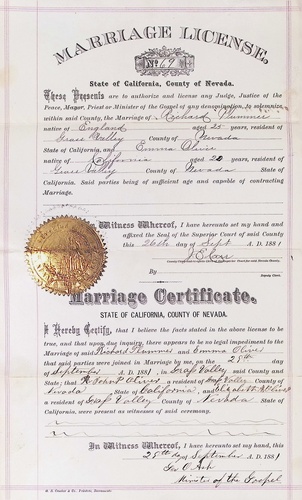 MARRIAGE LICENSE.
No 69
State of California, County of Nevada.
These Presents are to authorize and license any Judge, Justice of the
Peace, Mayor, Priest or Minister of the Gospel of any denomination, to solemnize
within said County, the Marriage of Richard Plummer
native of England aged 25 years, resident of
Grass Valley County of Nevada
State of California, and Emma Oliver
native of California aged 20 years, resident of
Grass Valley, County of Nevada
State of California. Said parties being of sufficient age and capable of contracting
Marriage.
In Witness Whereof, I have hereunto set my hand and
affixed the Seal of the Superior Court of said County
this 26th day of Sept A.D. 1881
By
Deputy Clerk.
Marriage Certificate.
STATE OF CALIFORNIA, COUNTY OF NEVADA.
I Hereby Certify, that I believe the facts stated in the above license to be
true, and that upon due inquiry, there appears to be no legal impediment to the
Marriage of said Richard Plummer and Emma Oliver
that said parties were joined in Marriage by me, on the 28th day
of September A.D. 1881, in Grass Valley said County and
State; that John Oliver a resident of Grass Valley County of
Nevada, State of California, and Oliver
a resident of Grass Valley County of Nevada State of
California, were present as witnesses of said ceremony.
In Witness Whereof, I have hereunto set my hand, this
28th day of September A.D. 1881
Geo.
Minister of the Gospel